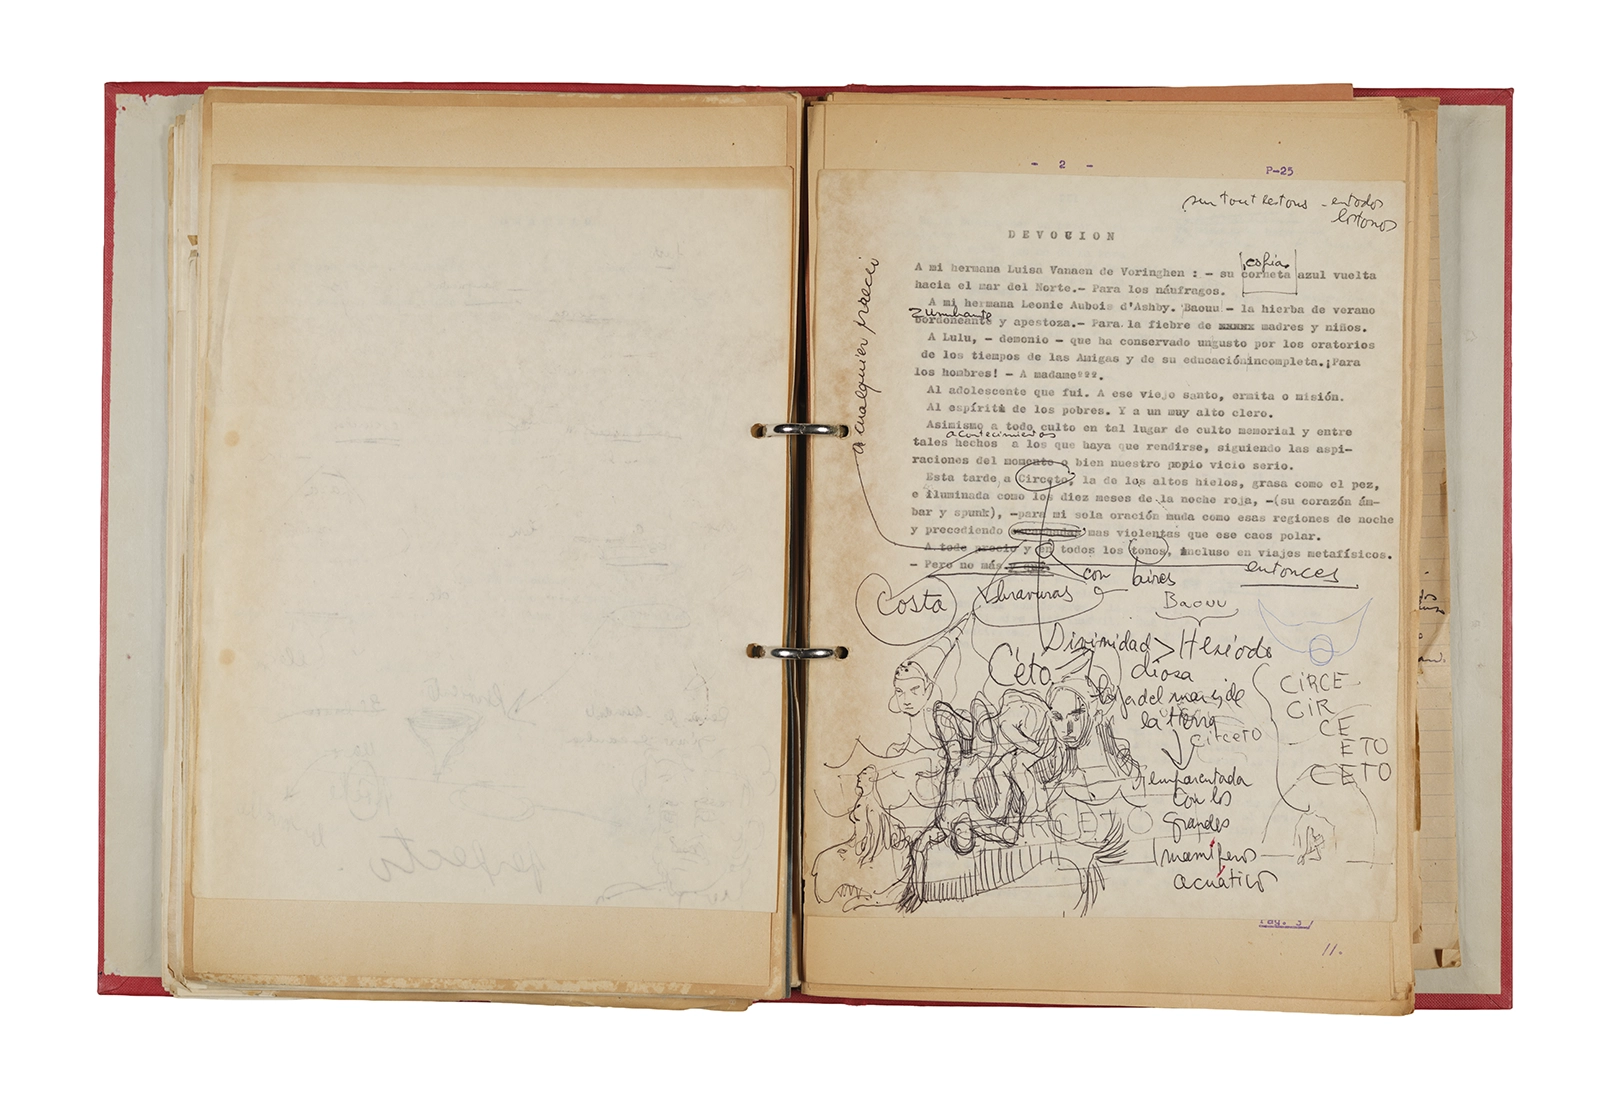 - 2 -
P-25
sur tout les tons - en todos
los tonos
DEVOCION
cofia
A mi hermana Luisa Vanaen de Voringhen : - su corneta azul vuelta
hacia el mar del Norte.- Para los náufragos.
A mi hermana Leonie Aubois d'Ashby. Baouu - la hierba de verano
zumbante
bordoneante y apestoza.- Para la fiebre de xxxxx madres y niños.
A Lulu, - demonio - que ha conservado ungusto por los oratorios
de los tiempos de las Amigas y de su educaciónincompleta.¡Para
los hombres! - A madameººº.
Al adolescente que fui. A ese viejo santo, ermita o misión.
Al espíritu de los pobres. Y a un muy alto clero.
Asimismo a todo culto en tal lugar de culto memorial y entre
acontecimientos
tales hechos a los que haya que rendirse, siguiendo las aspi-
raciones del momento o bien nuestro popio vicio serio.
Esta tarde a Circeto, la de los altos hielos, grasa como el pez,
e iluminada como los diez meses de la noche roja, -(su corazón ám-
bar y spunk), -para mi sola oración muda como esas regiones de noche
y precediendo mas violentas que ese caos polar.
A todo precio y en todos los tonos, incluso en viajes metafísicos.
- Pero no más.
a cualquier precio
con aires
entonces
costa
bravuras
Baouu
Divinidad > Hesíodo
Ceto
diosa
hija del mar y de
la tierra
Circeto
emparentada
con los
grandes
mamíferos
acuáticos
CIRCE
CIR
CE
ETO
CETO
CIRCETO
Pag. 3/
11.